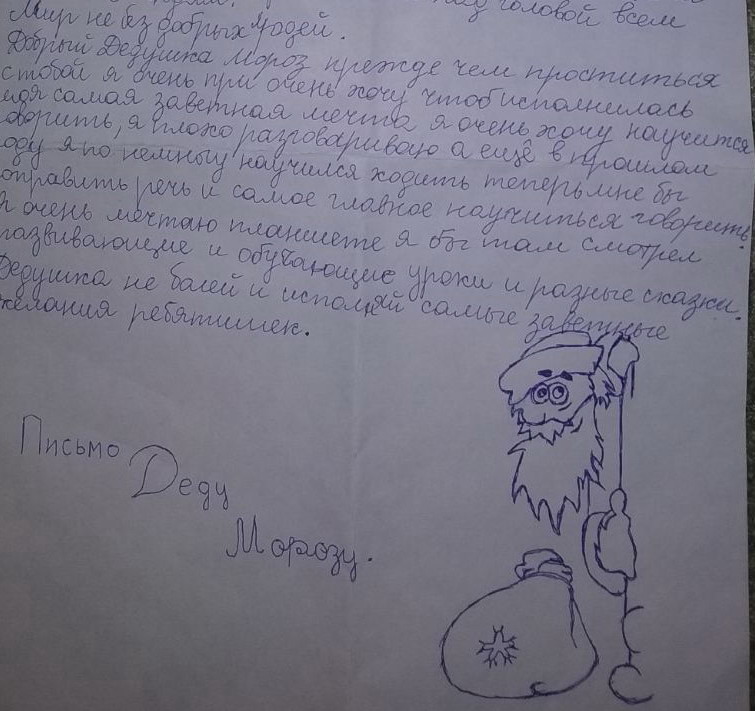 над головой всем
Мир не без добрых людей.
Добрый Дедушка Мороз прежде чем проститься
с тобой я очень при очень хочу чтоб исполнилась
моя самая заветная мечта я очень хочу научится
оворить, я плохо разговариваю а ещё в прошлом
оду я по немногу научился ходить теперь мне бы
оправить речь и самое главное научиться говорить.
Я очень мечтаю планшете я бы там смотрел
развивающие и обучающие уроки и разные сказки.
Дедушка не болей и исполняй самые заветные
желания ребятишек.
Письмо
Деду
Морозу.